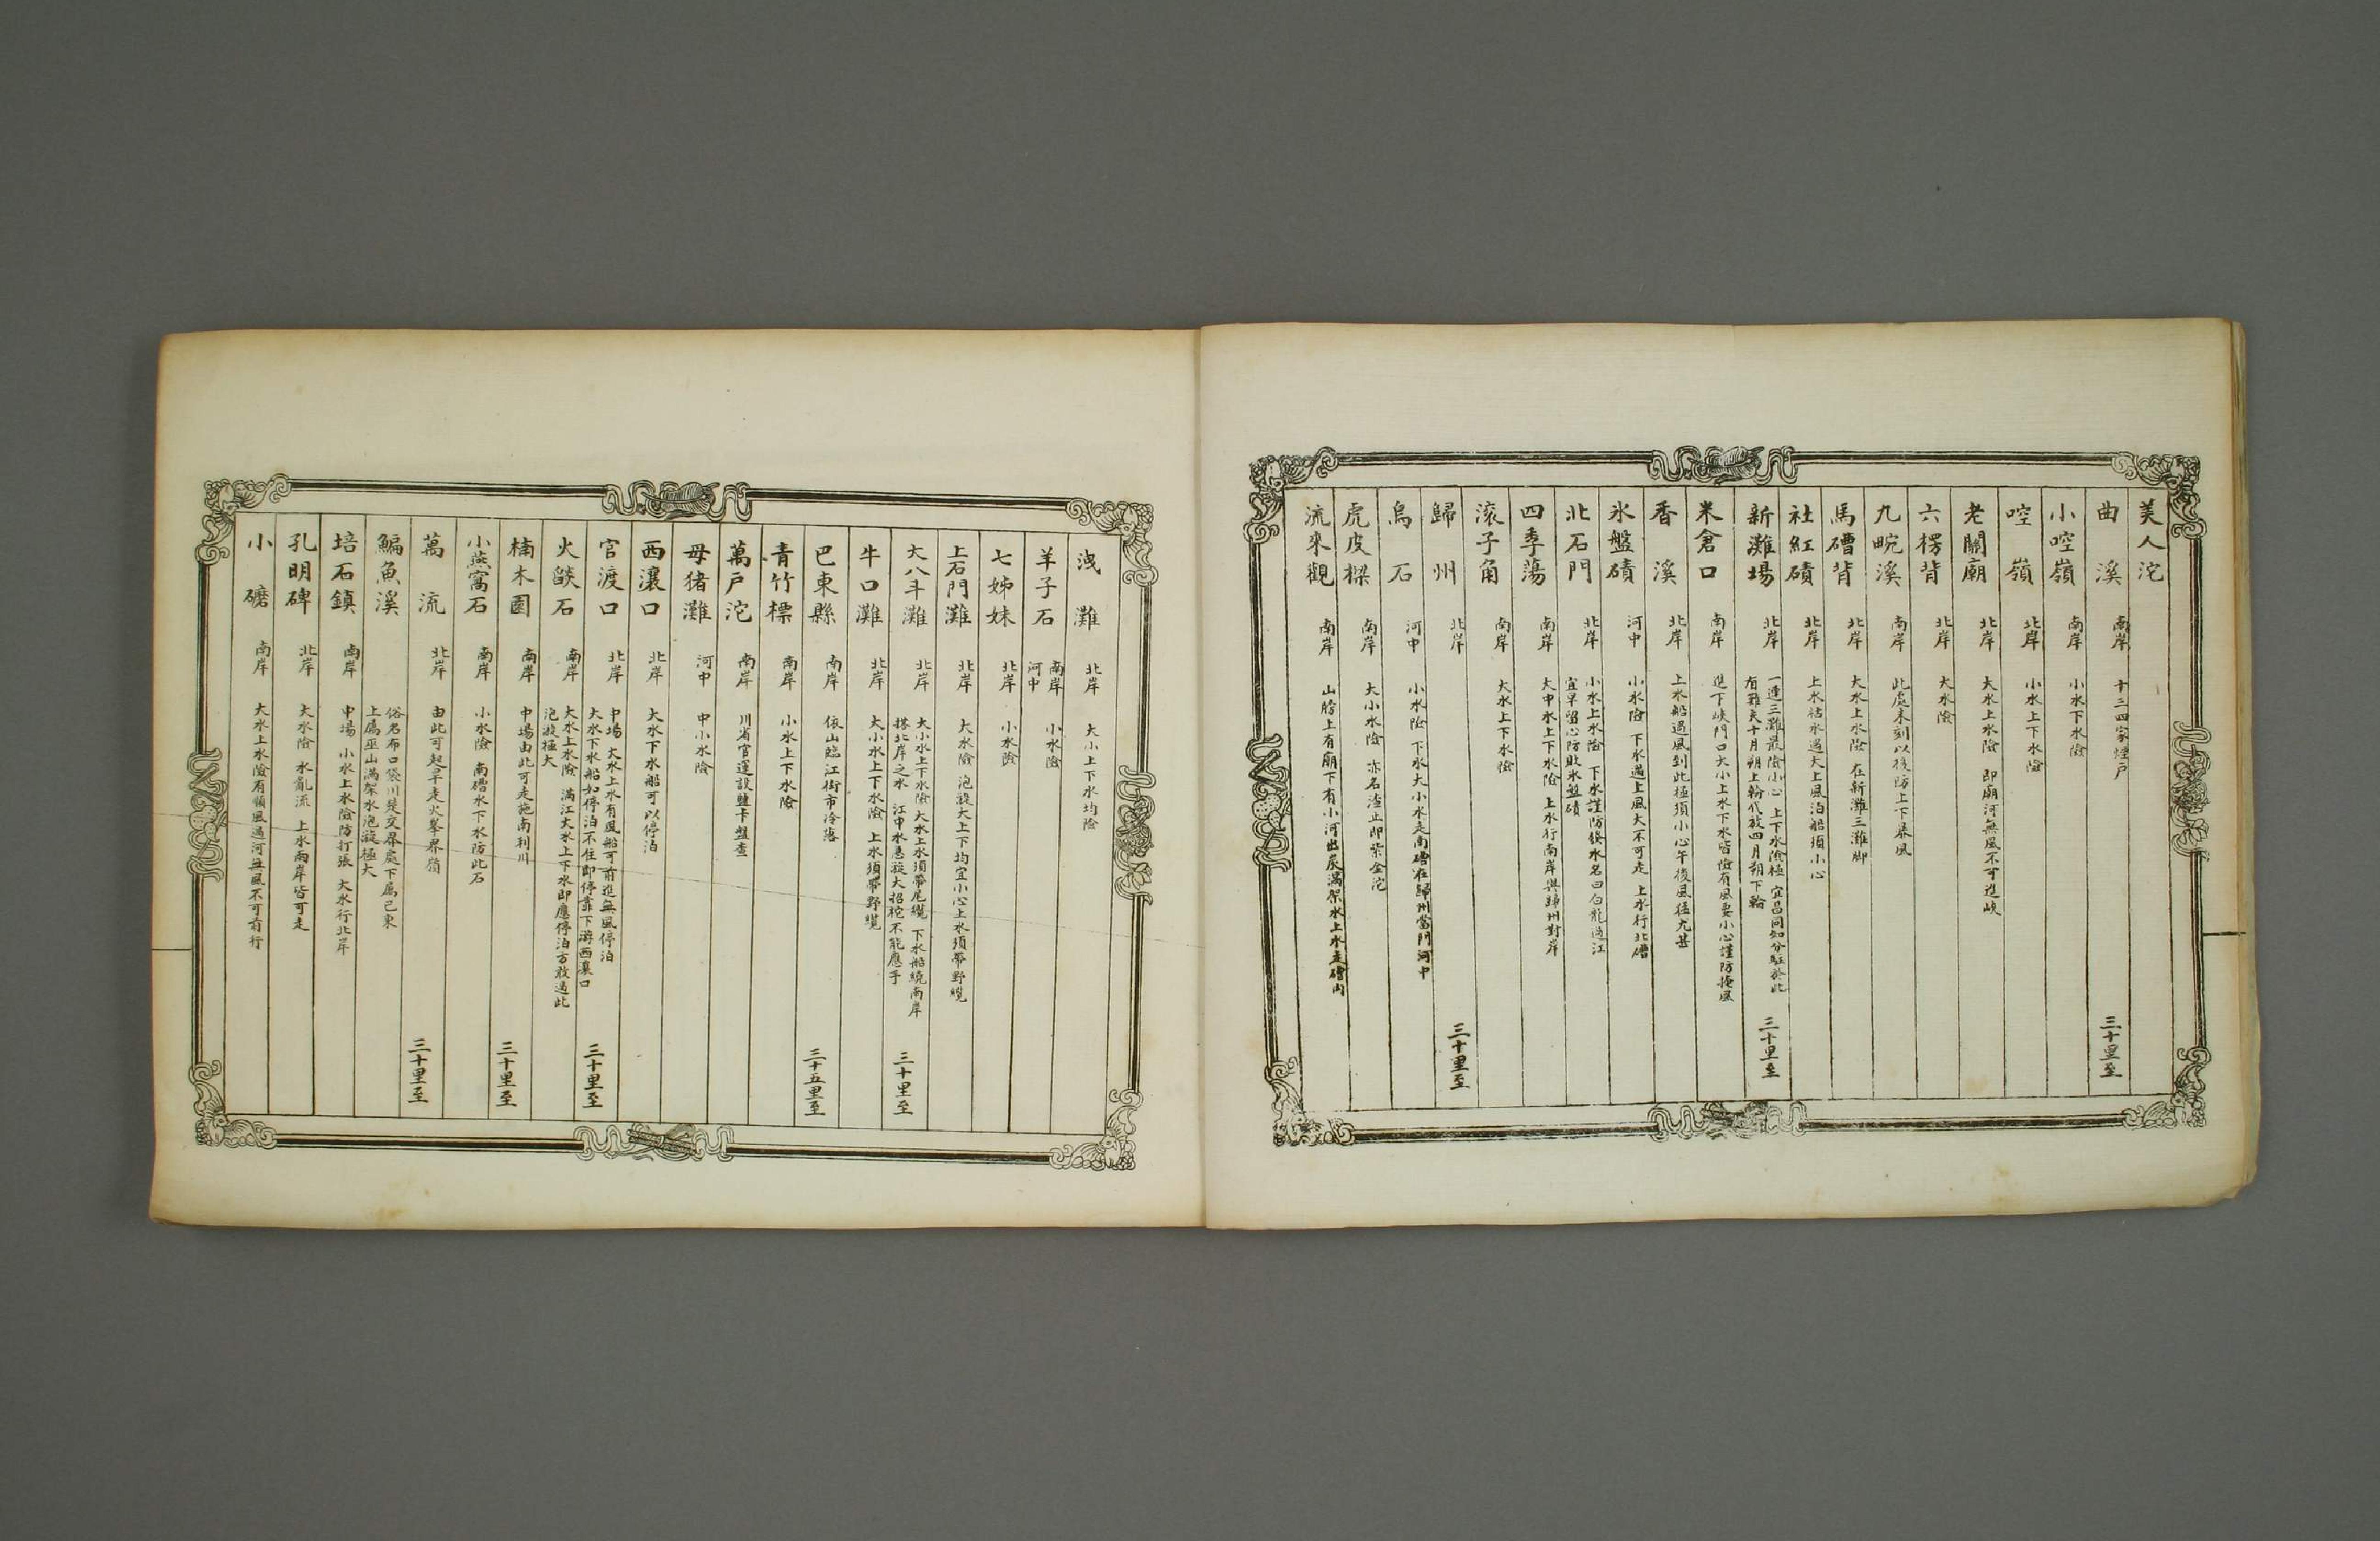 美人沱
曲溪 南岸 十三四家煙户 三十里至
小崆嶺 南岸 小水下水險
崆嶺 北岸 小水上下水險
老關廟 北岸 大水上水險 即廟河無風不可進峽
六楞背 北岸 大水險
九畹溪 南岸 此處未刻以後防上下暴風
馬磳背 北岸 大水上水險 在新灘三灘脚
社紅磧 北岸 上水枯水遇大上風泊船須小心
新灘場 北岸 一連三灘最險小心 上下水險極 宜昌同知分駐於此 三十里至
有難夫十月朔上輪代放四月朔下輪
米倉口 南岸 進下峽門口大小上水下水皆險有風要小心謹防掩風
香溪 北岸 上水船遇風到此極須小心午後風猛尤甚
氷盤磧 河中 小水險 下水遇上風大不可走 上水行北磳
北石門 北岸 小水上水險 下水謹防發水名曰白龍過江
宜早留心防敗氷盤磧
四季蕩 南岸 大中水上下水險 上水行南岸與歸州對岸
滚子角 南岸 大水上下水險
歸州 北岸 三十里至
烏石 河中 小水險 下水大小水走南磳在歸州當門河中
虎皮樑 南岸 大小水險 亦名渣止即紫金沱
流來觀 南岸 山膀上有廟下有小河出炭滿架水上水走磳内
洩灘 北岸 大小上下水均險
羊子石 南岸 河中 小水險
七姊妹 北岸 小水險
上石門灘 北岸 大水險 泡漩大上下均宜小心上水須帶野纜
大八斗灘 北岸 大小水上下水險 大水上水須帶尾纜 下水船繞南岸
搭北岸之水 江中水急漩大招柁不能應手 三十里至
牛口灘 北岸 大小水上下水險 上水須帶野纜
巴東縣 南岸 依山臨江街市冷落 三十五里至
青竹標 南岸 小水上下水險
萬户沱 南岸 川省官運設鹽卡盤查
母猪灘 河中 中小水險
西瀼口 北岸 大水下水船可以停泊
官渡口 北岸 中場 大水上水有風船可前進無風停泊
大水下水船如停泊不住即停靠下游西瀼口 三十里至
火燄石 南岸 大水上水險 滿江大水上下水即應停泊方敢過此
泡漩極大
楠木園 南岸 中場由此可走施南利川 三十里至
小燕窩石 南岸 小水險 南磳水下水防此石
萬流 北岸 由此可起旱走火峯界嶺 三十里至
鯿魚溪 俗名布口袋川楚交界處下屬巴東
上屬巫山滿架水泡漩極大
培石鎮 南岸 中場 小水上水險防打張 大水行北岸
孔明碑 北岸 大水險 水亂流 上水兩岸皆可走
小磨 南岸 大水上水險有順風過河無風不可前行